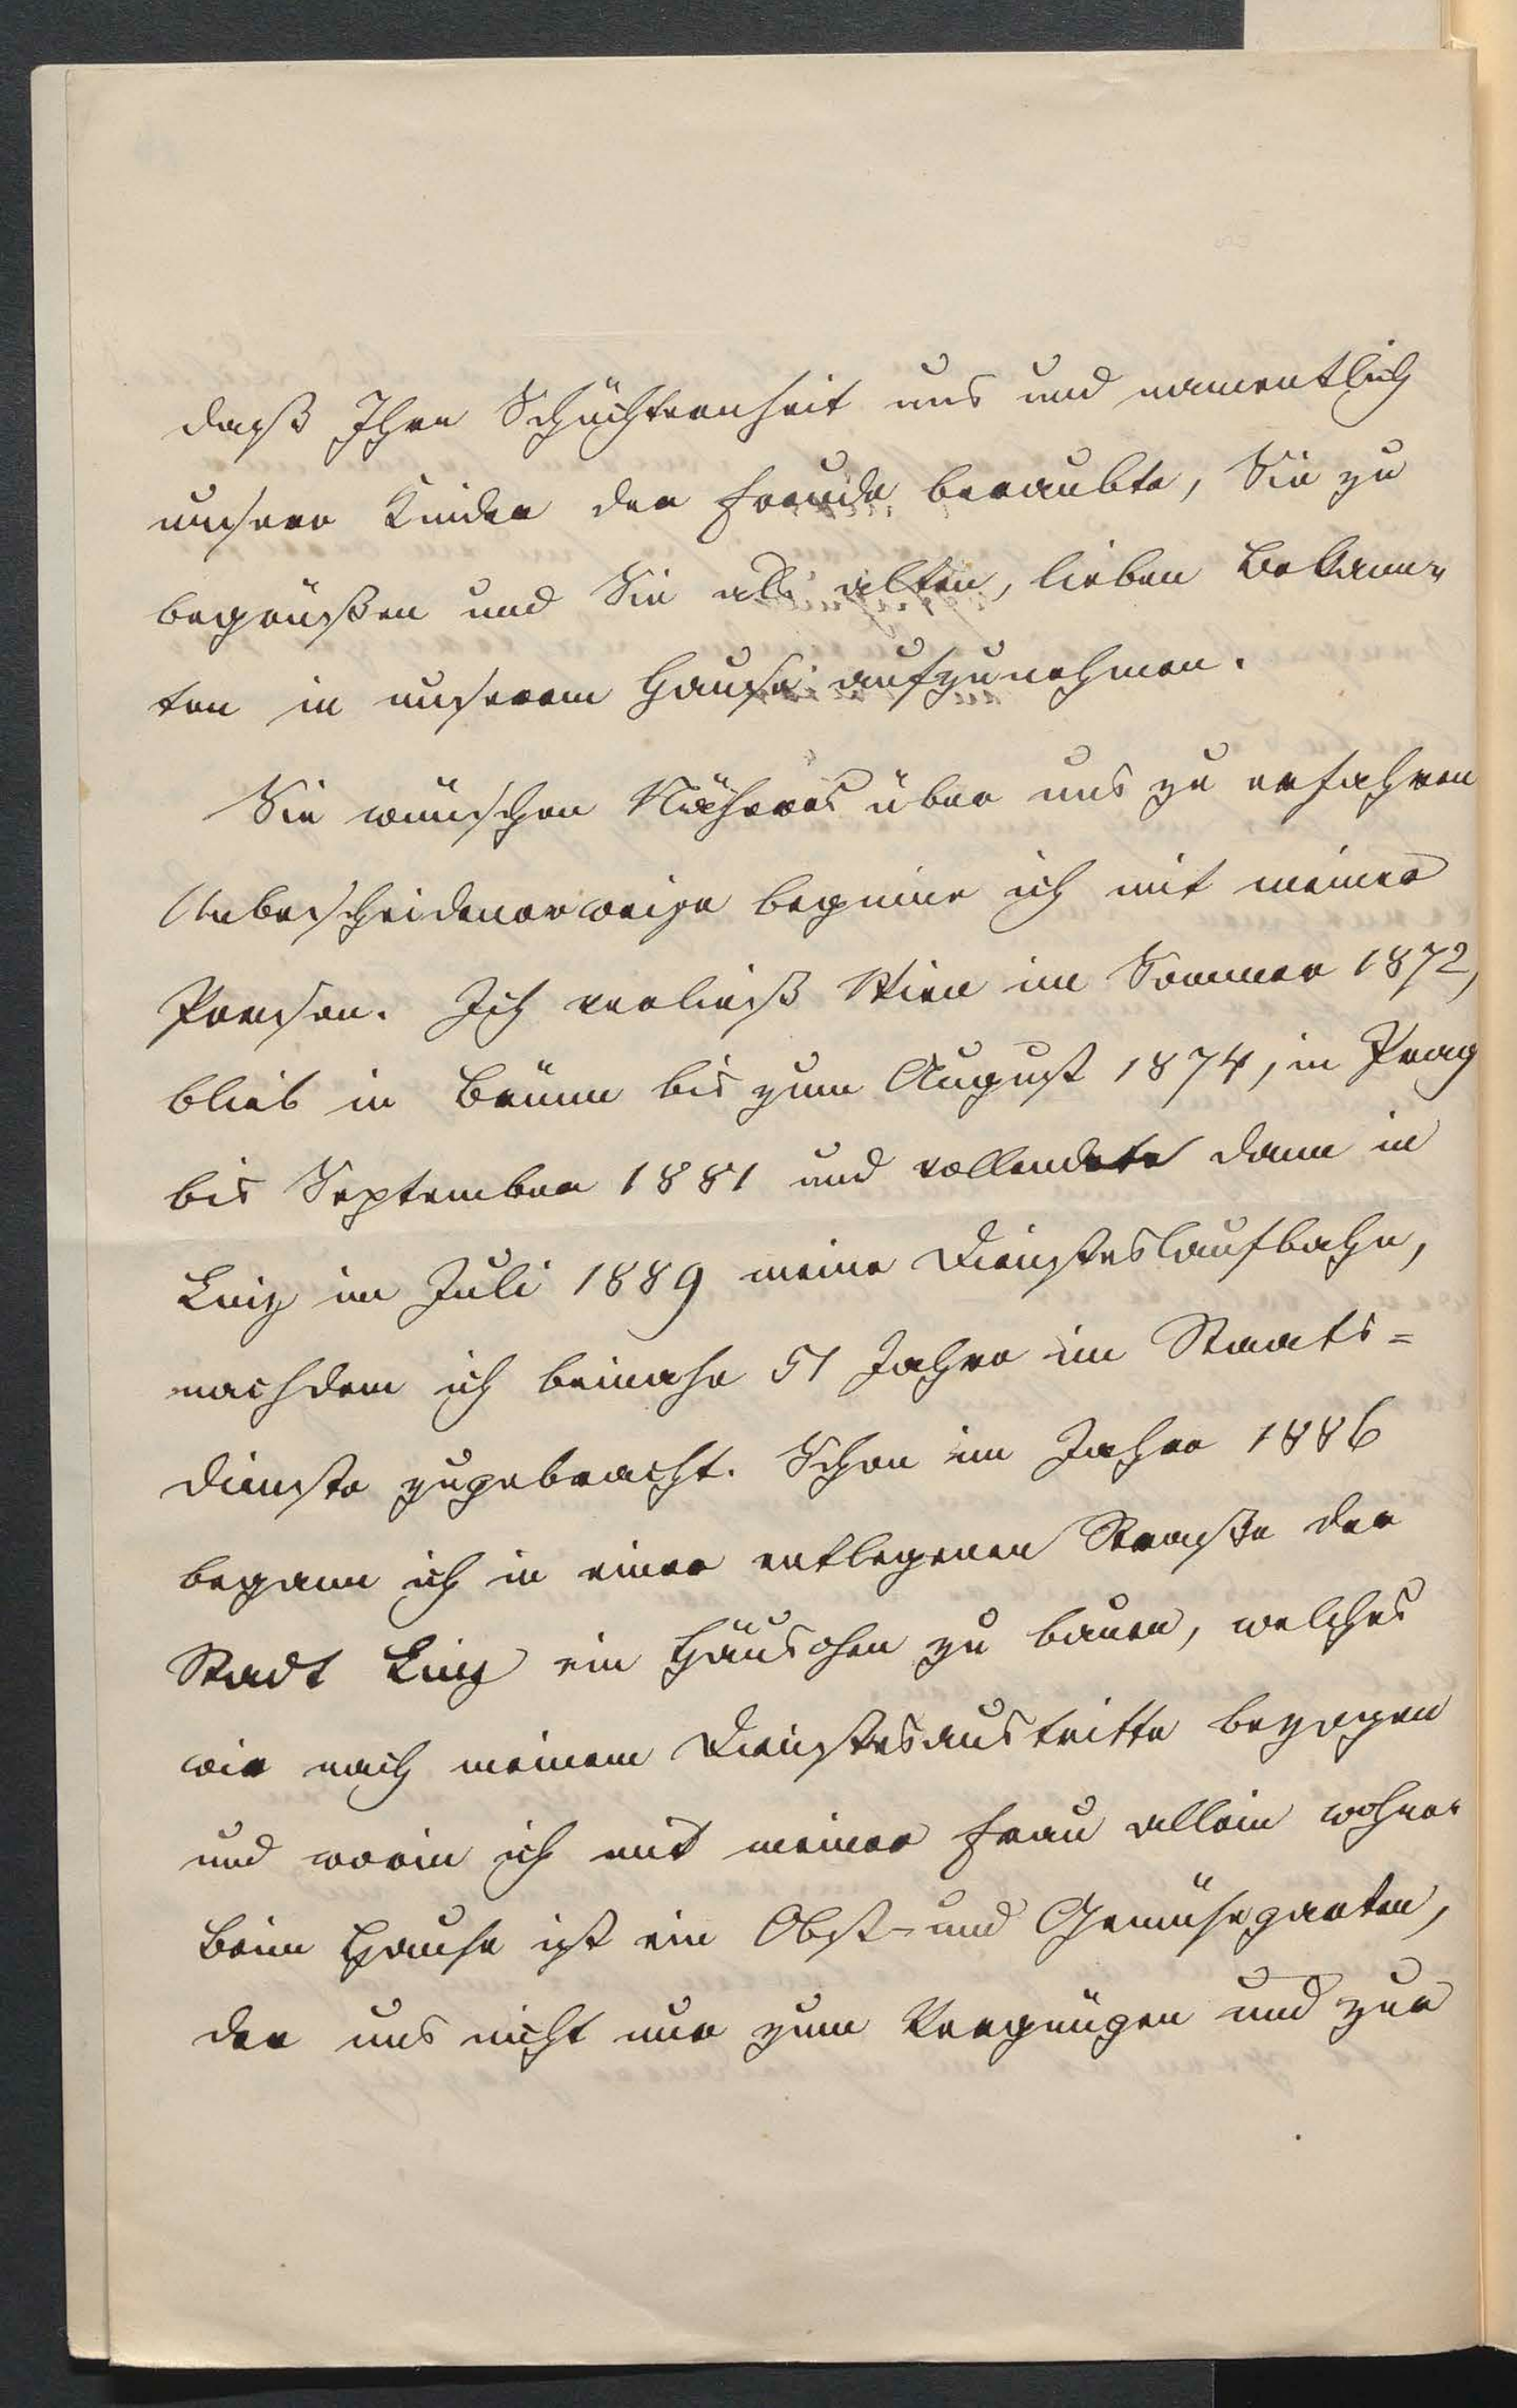 daß Ihre Schüchternheit uns und namentlich
unsere Kinder der Freude beraubte, Sie zu
begrüßen und Sie als alten, lieben Bekann-
ten in unserem Hause aufzunehmen.
Sie wünschen Näheres über uns zu erfahren
Unbescheidenerweise beginne ich mit meiner
Person. Ich verließ Wien im Sommer 1872,
blieb in Brünn bis zum August 1874, in Prag
bis September 1881 und vollendete dann in
Linz im Juli 1889 meine Diensteslaufbahn,
nachdem ich beinahe 51 Jahre im Staats=
dienste zugebracht. Schon im Jahre 1886
begann ich in einer entlegenen Straße der
Stadt Linz ein Häuschen zu bauen, welches
wir nach meinem Dienstesaustritte bezogen
und worin ich mit meiner Frau allein wohne.
Beim Hause ist ein Obst- und Gemüsegarten,
der uns nicht nur zum Vergnügen und zur